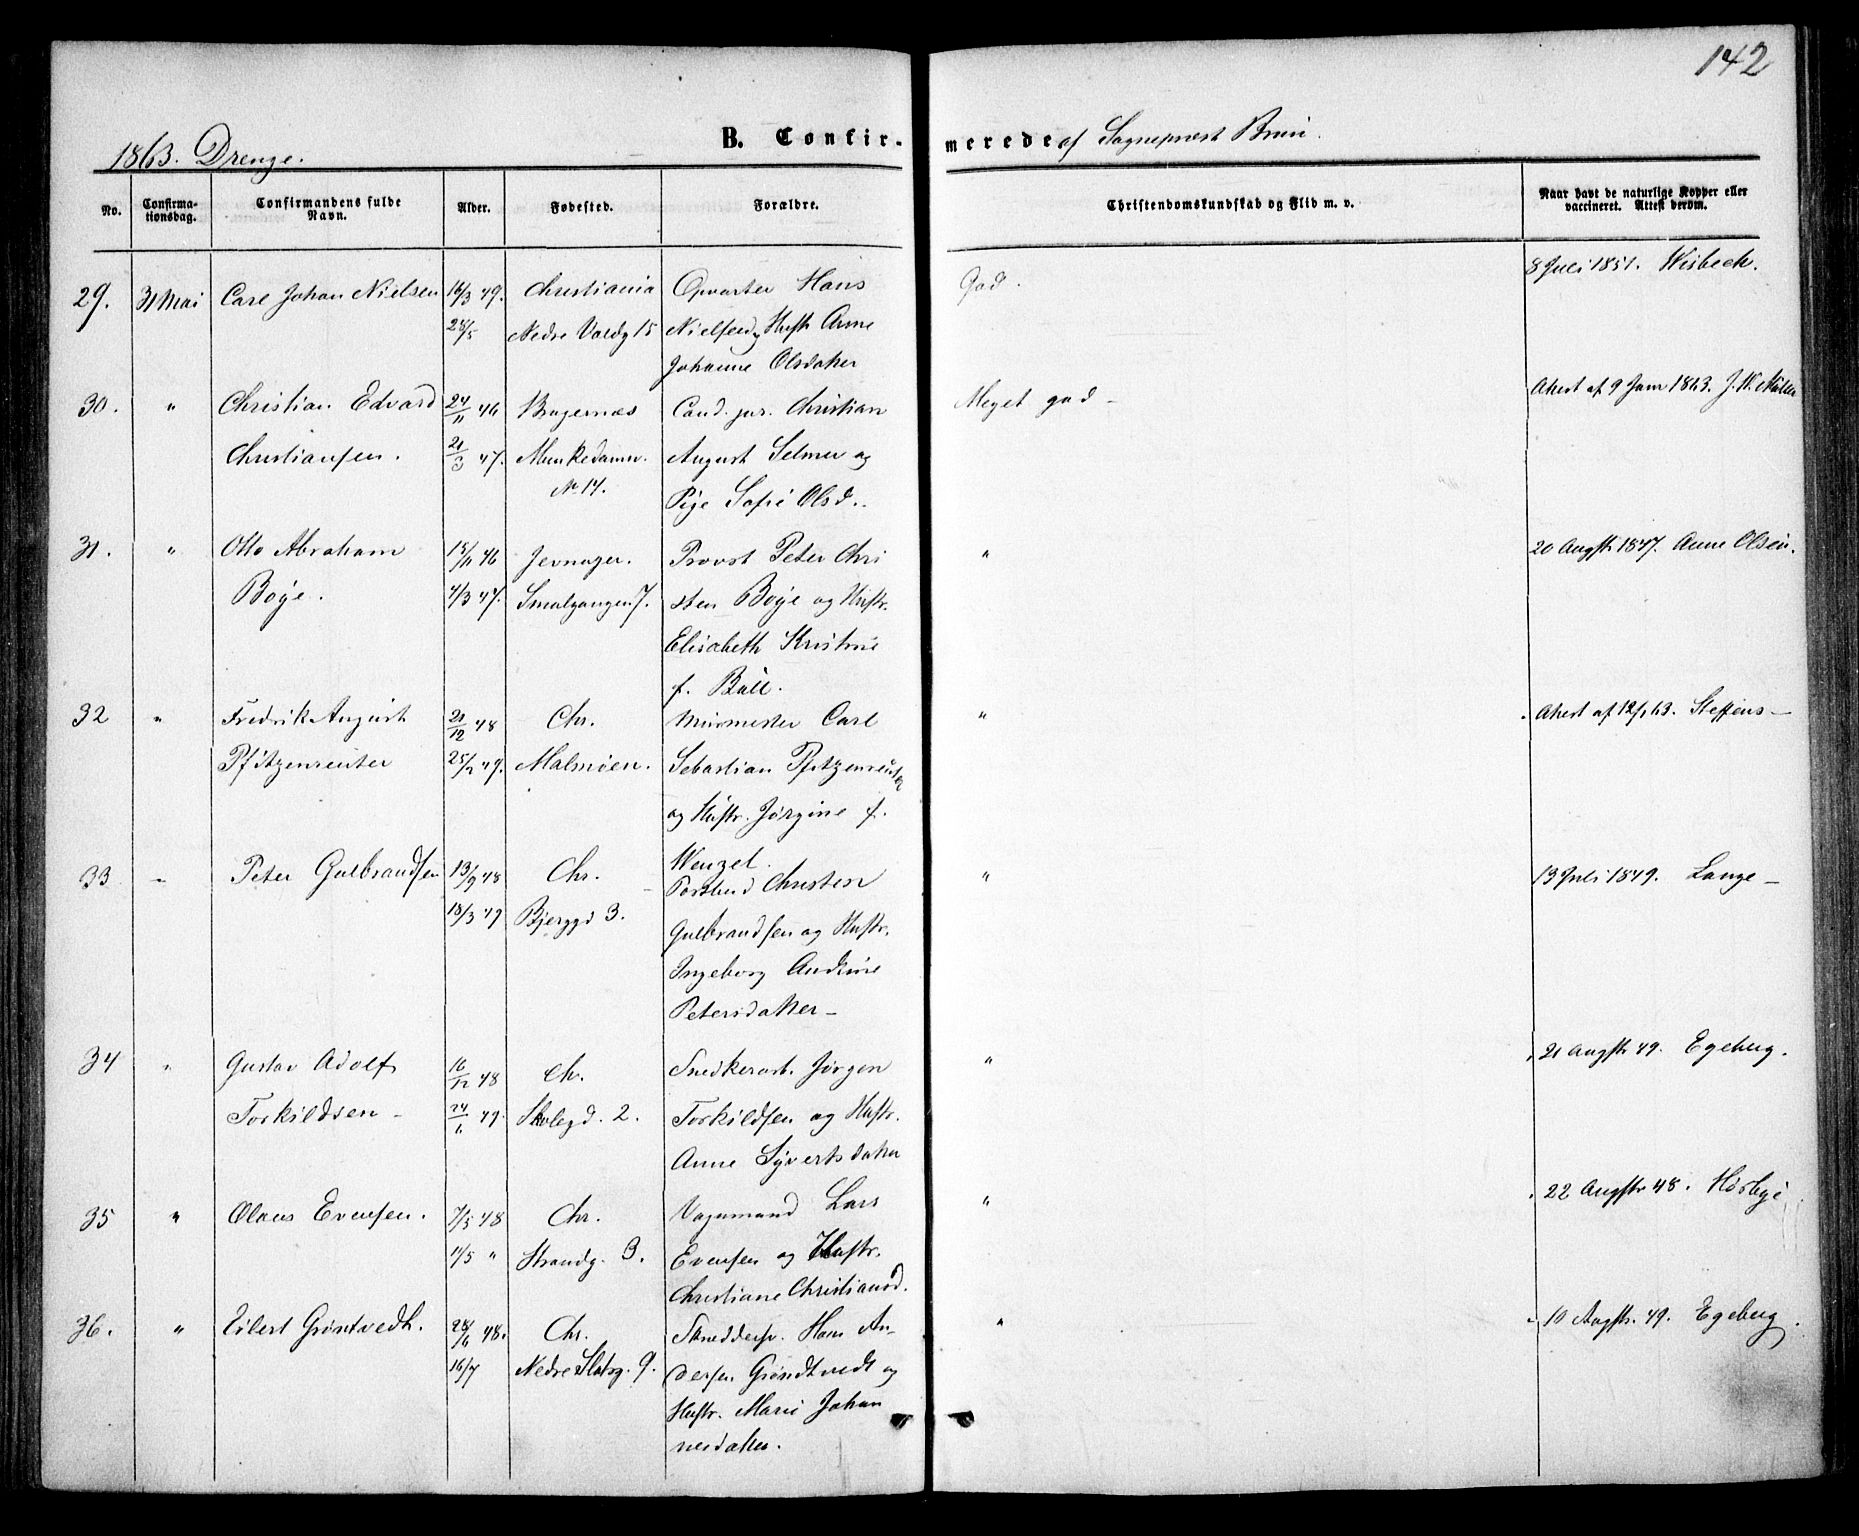 142
1863. Drenge. B. Confir- merede af Sognepræst Bruun.
No. Confirma-tionsdag. Confirmandens fulde Navn. Alder. Fødested. Forældre. Christendomskundskab og Flid m. v. Naar havt de naturlige Kopper eller vaccineret. Attest derom.
29. 31 Mai Carl Johan Nielsen 16/3 49. Christiania Opvarter Hans God. 8 Juli 1851. Wisbech.
28/5 Nedre Voldg 15 Nielsen og Hustr Anne
Johanne Olsdatter
30. " Christian Edvard 24/11 46 Bragernæs Cand. jur. Christian Meget god - Attest af 9 Janr 1863. J. W. Müller
Christiansen. 21/3 47. Munkedamsv. August Selmer og
No 14. Pige Sofie Olsd..
31. " Otto Abraham 18/11 46 Jevnager. Provst Peter Chri " 20 Augstr 1847. Anne Olsen.
Boye. 4/3 47. Smalgangen 7. sten Boye og Hustr.
Elisabeth Kristine
f. Bull.
32 " Fredrik August 21/12 48 Chr. Murmester Carl " Attest af 12/1 63. Steffens -
Pfitzenreuter 25/2 49. Malmøen. Sebastian Pfitzenreuter
og Hustr. Jørgine f.
Wenzel.
33 " Peter Gulbrandsen 13/9 48 Chr. Postbud Christen " 13 Juli 1849. Lange -
18/3 49 Bjerggd 3. Gulbrandsen og Hustr.
Ingeborg Andrine
Petersdatter -
34 " Gustav Adolf 16/12 48 Chr. Snedkerarb. Jørgen " 21 Augstr 49. Egeberg.
Torkildsen - 24/6 49. Skolegd. 2. Torkildsen og Hustr.
Anne Syvertsdatter
35 " Olaus Evensen. 7/5 48 Chr. Vognmand Lars " 22 Augstr 48. Hørbye
11/5 " Strandg. 3. Evensen og Hustr.
Christiane Christiansd.
36. " Eilert Gröntvedt. 28/6 48. Chr. Skreddersv. Hans An- " 10 Augstr. 49. Egeberg.
16/7 Nedre Slotsg. 9. dersen Gröndtvedt og
Hustr. Marie Johan
nesdatter.